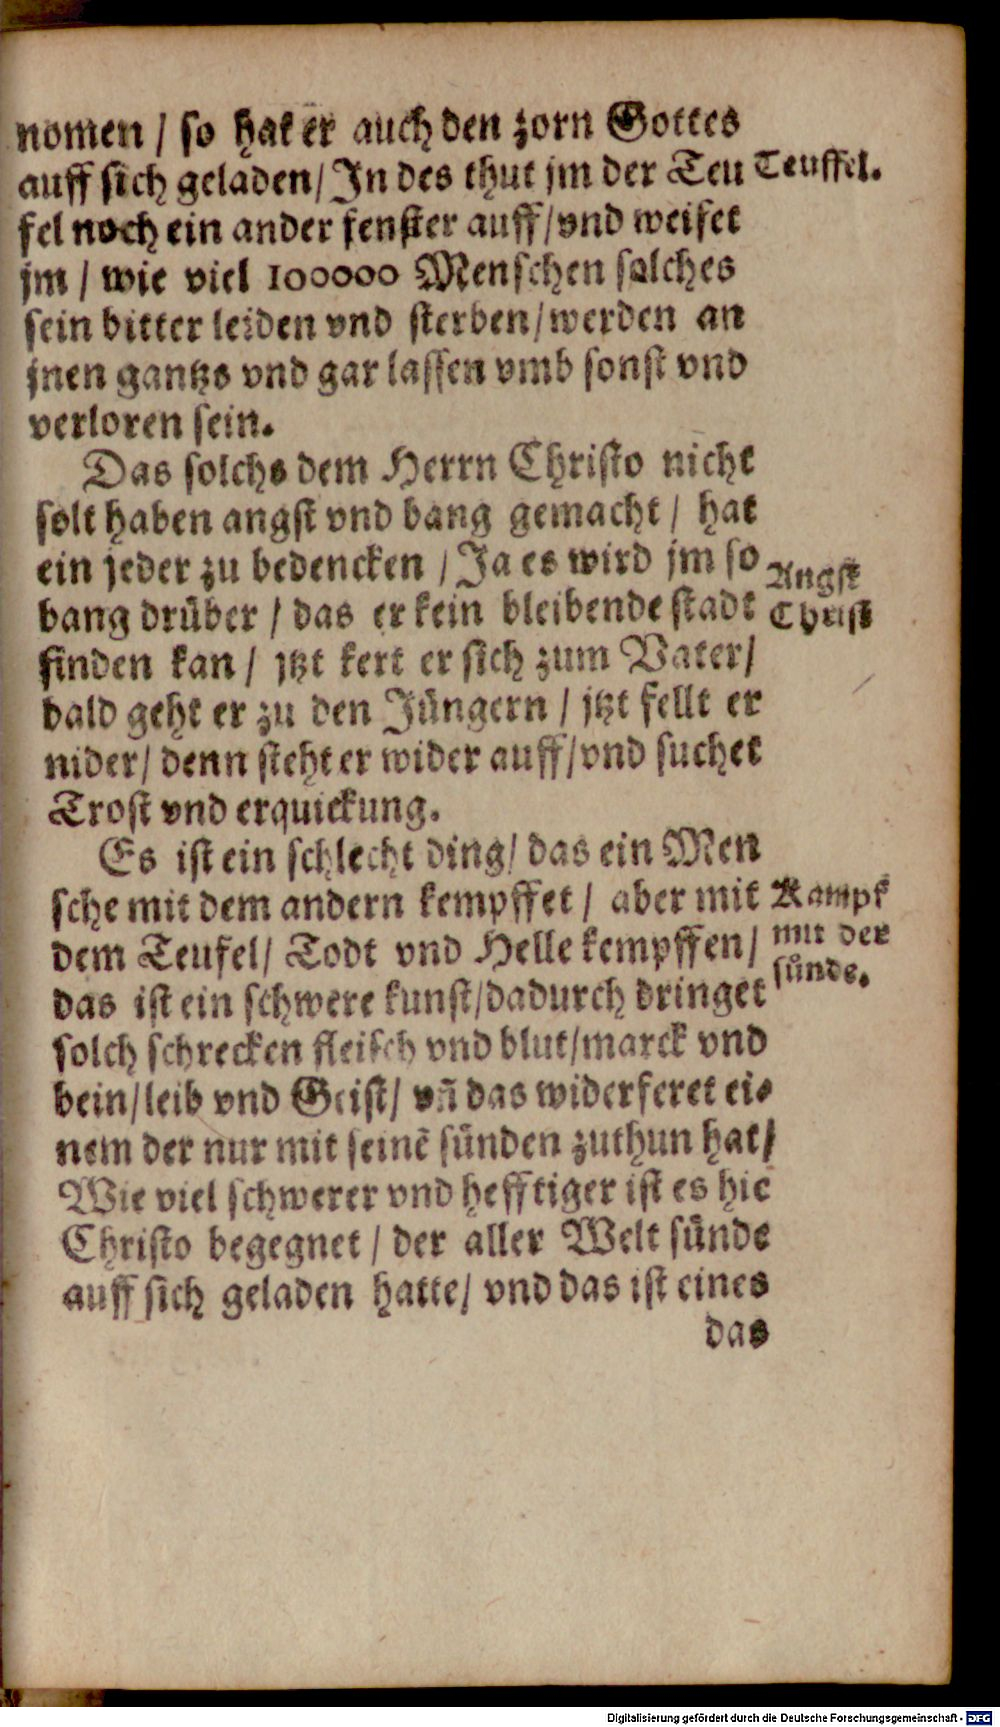 nomen / so hat er auch den zorn Gottes
auff sich geladen / In des thut jm der Teu
Teuffel.
fel noch ein ander fenster auff / vnd weiset
jm / wie viel 100000 Menschen solches
sein bitter leiden vnd sterben / werden an
jnen gantzs vnd gar lassen vmb sonst vnd
verloren sein.
Das solchs dem Herrn Christo nicht
solt haben angst vnd bang gemacht / hat
ein jeder zu bedencken / Ja es wird jm so
Angst
bang drüber / das er kein bleibende stadt
Christ
finden kan / jtzt kert er sich zum Vater /
bald geht er zu den Jüngern / jtzt fellt er
nider / denn steht er wider auff / vnd suchet
Trost vnd erquickung.
Es ist ein schlecht ding / das ein Men
sche mit dem andern kempffet / aber mit
Kampf
dem Teufel / Todt vnd Helle kempffen /
mit der
das ist ein schwere kunst / dadurch dringet
sünde.
solch schrecken fleisch vnd blut / marck vnd
bein / leib vnd Geist / vñ das widerferet ei-
nem der nur mit seinẽ sünden zuthun hat /
Wie viel schwerer vnd hefftiger ist es hie
Christo begegnet / der aller Welt sünde
auff sich geladen hatte / vnd das ist eines
das
Digitalisierung gefördert durch die Deutsche Forschungsgemeinschaft - DFG